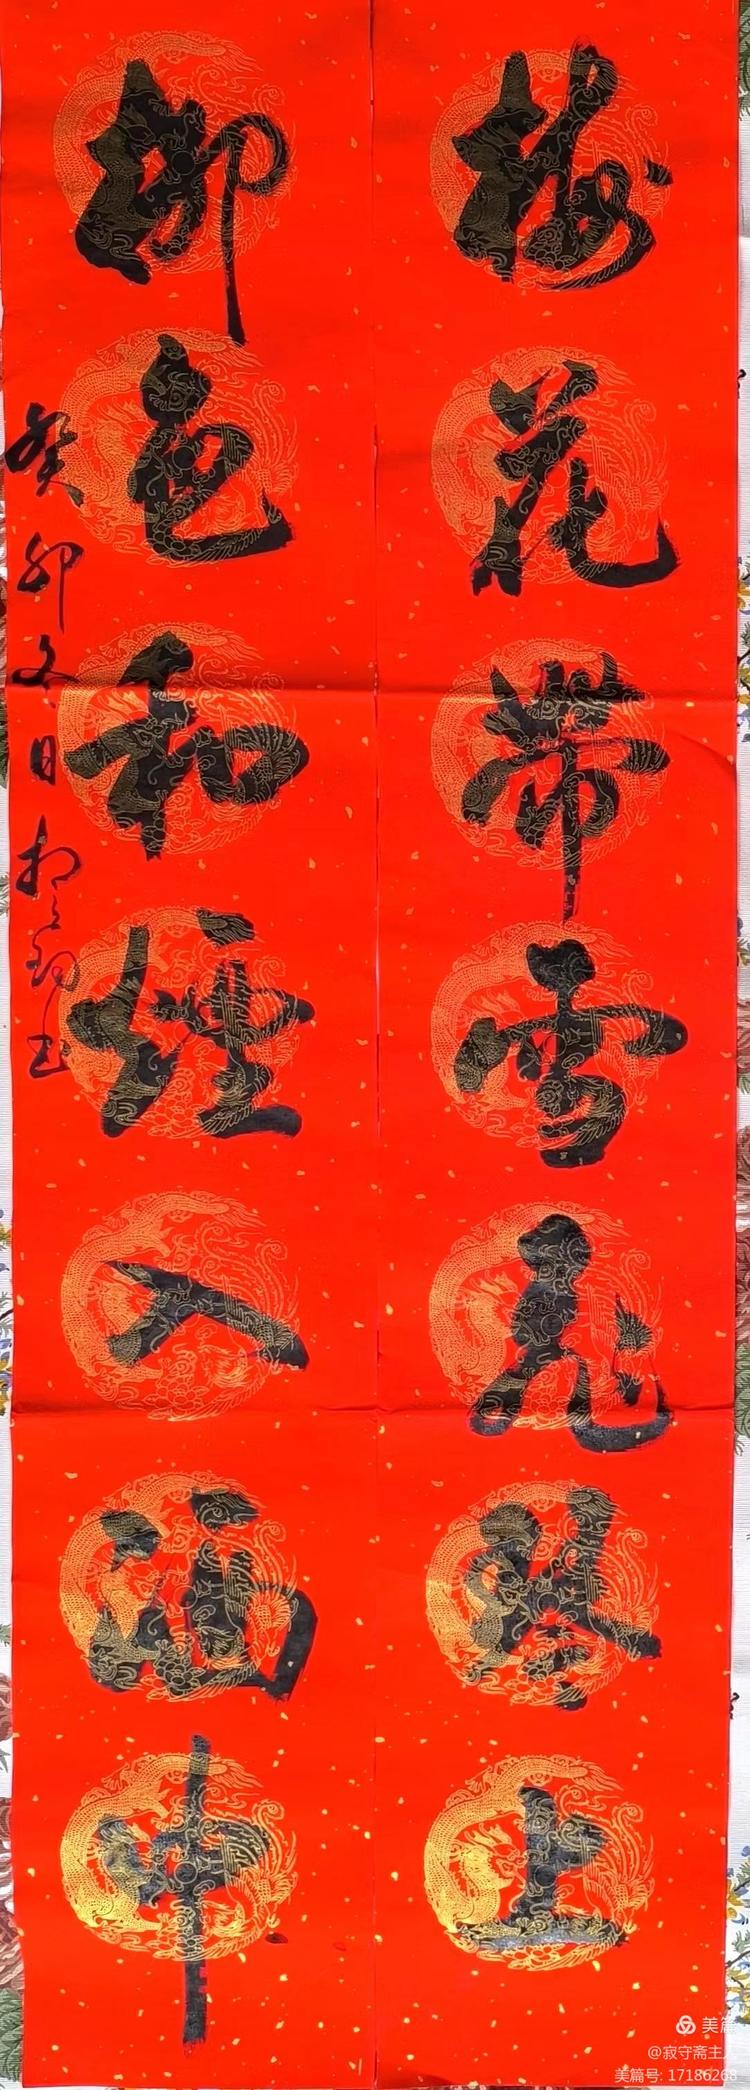 梅花帶雪飛琴上
柳色和煙入酒中
癸卯冬日
美篇
@寂守斋主人
美篇号: 17186268